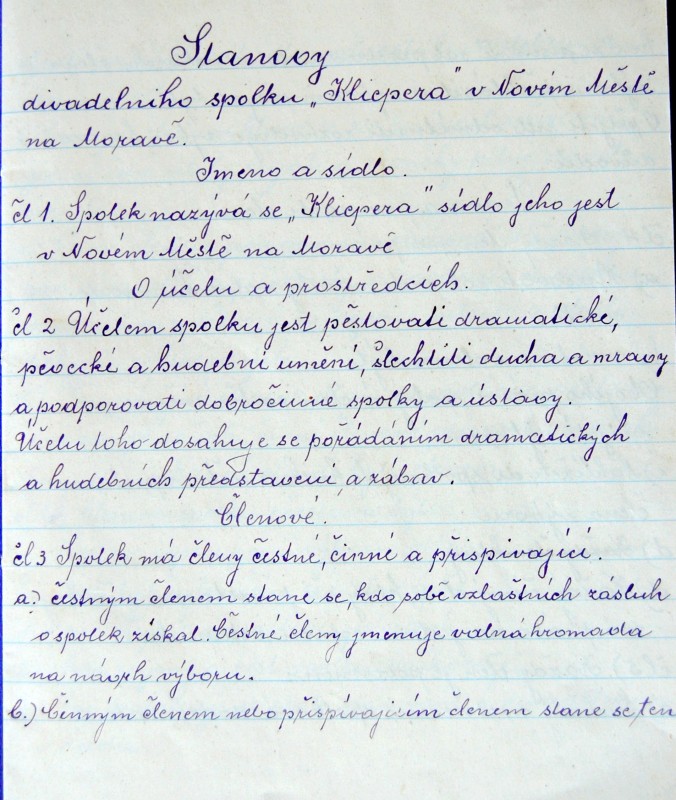 Stanovy
divadelního spolku „Klicpera" v Novém Městě
na Moravě.
Jmeno a sídlo.
čl 1. Spolek nazývá se „Klicpera" sídlo jeho jest
v Novém Městě na Moravě
O účelu a prostředcích.
čl 2 Účelem spolku jest pěstovati dramatické,
pěvecké a hudební umění, šlechtiti ducha a mravy
a podporovati dobročinné spolky a ústavy.
Účelu toho dosahuje se pořádáním dramatických
a hudebních představení a zábav.
Členové.
čl 3 Spolek má členy čestné, činné a přispívající.
a.) čestným členem stane se, kdo sobě vzlaštních zásluh
o spolek získal. Čestné členy jmenuje valná hromada
na návrh výboru.
b.) Činným členem nebo přispívajícím členem stane se ten